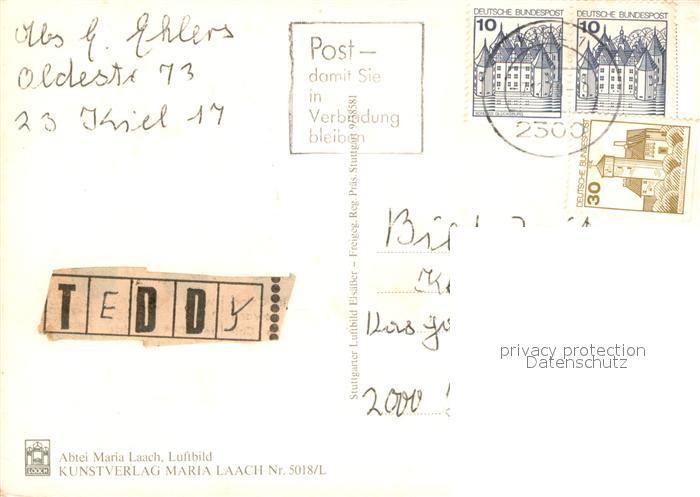 Abs G. Ehlers
Oldestr 73
23 Kiel 17
Post –
damit Sie
in
Verbindung
bleiben
10
DEUTSCHE BUNDESPOST
SCHLOSS GLÜCKSBURG
10
DEUTSCHE BUNDESPOST
2300
30
DEUTSCHE BUNDESPOST
TEDDY
Stuttgarter Luftbild Elsäßer – Freigeg. Reg. Präs. Stuttgart 9/58581
2000
privacy protection
Datenschutz
LAACH
Abtei Maria Laach, Luftbild
KUNSTVERLAG MARIA LAACH Nr. 5018/L